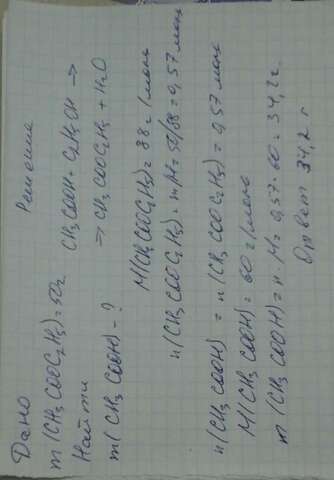 Дано
m(CH₃COOC₂H₅)=50г
Найти
m(CH₃COOH)-?
Решение
CH₃COOH+C₂H₅OH →
→ CH₃COOC₂H₅ + H₂O
M(CH₃COOC₂H₅)=88 г/моль
n(CH₃COOC₂H₅)=m/M=50/88=0,57 моль
n(CH₃COOH) = n(CH₃COOC₂H₅)=0,57 моль
M(CH₃COOH)=60 г/моль
m(CH₃COOH)=n·M=0,57·60=34,2г.
Ответ 34,2 г